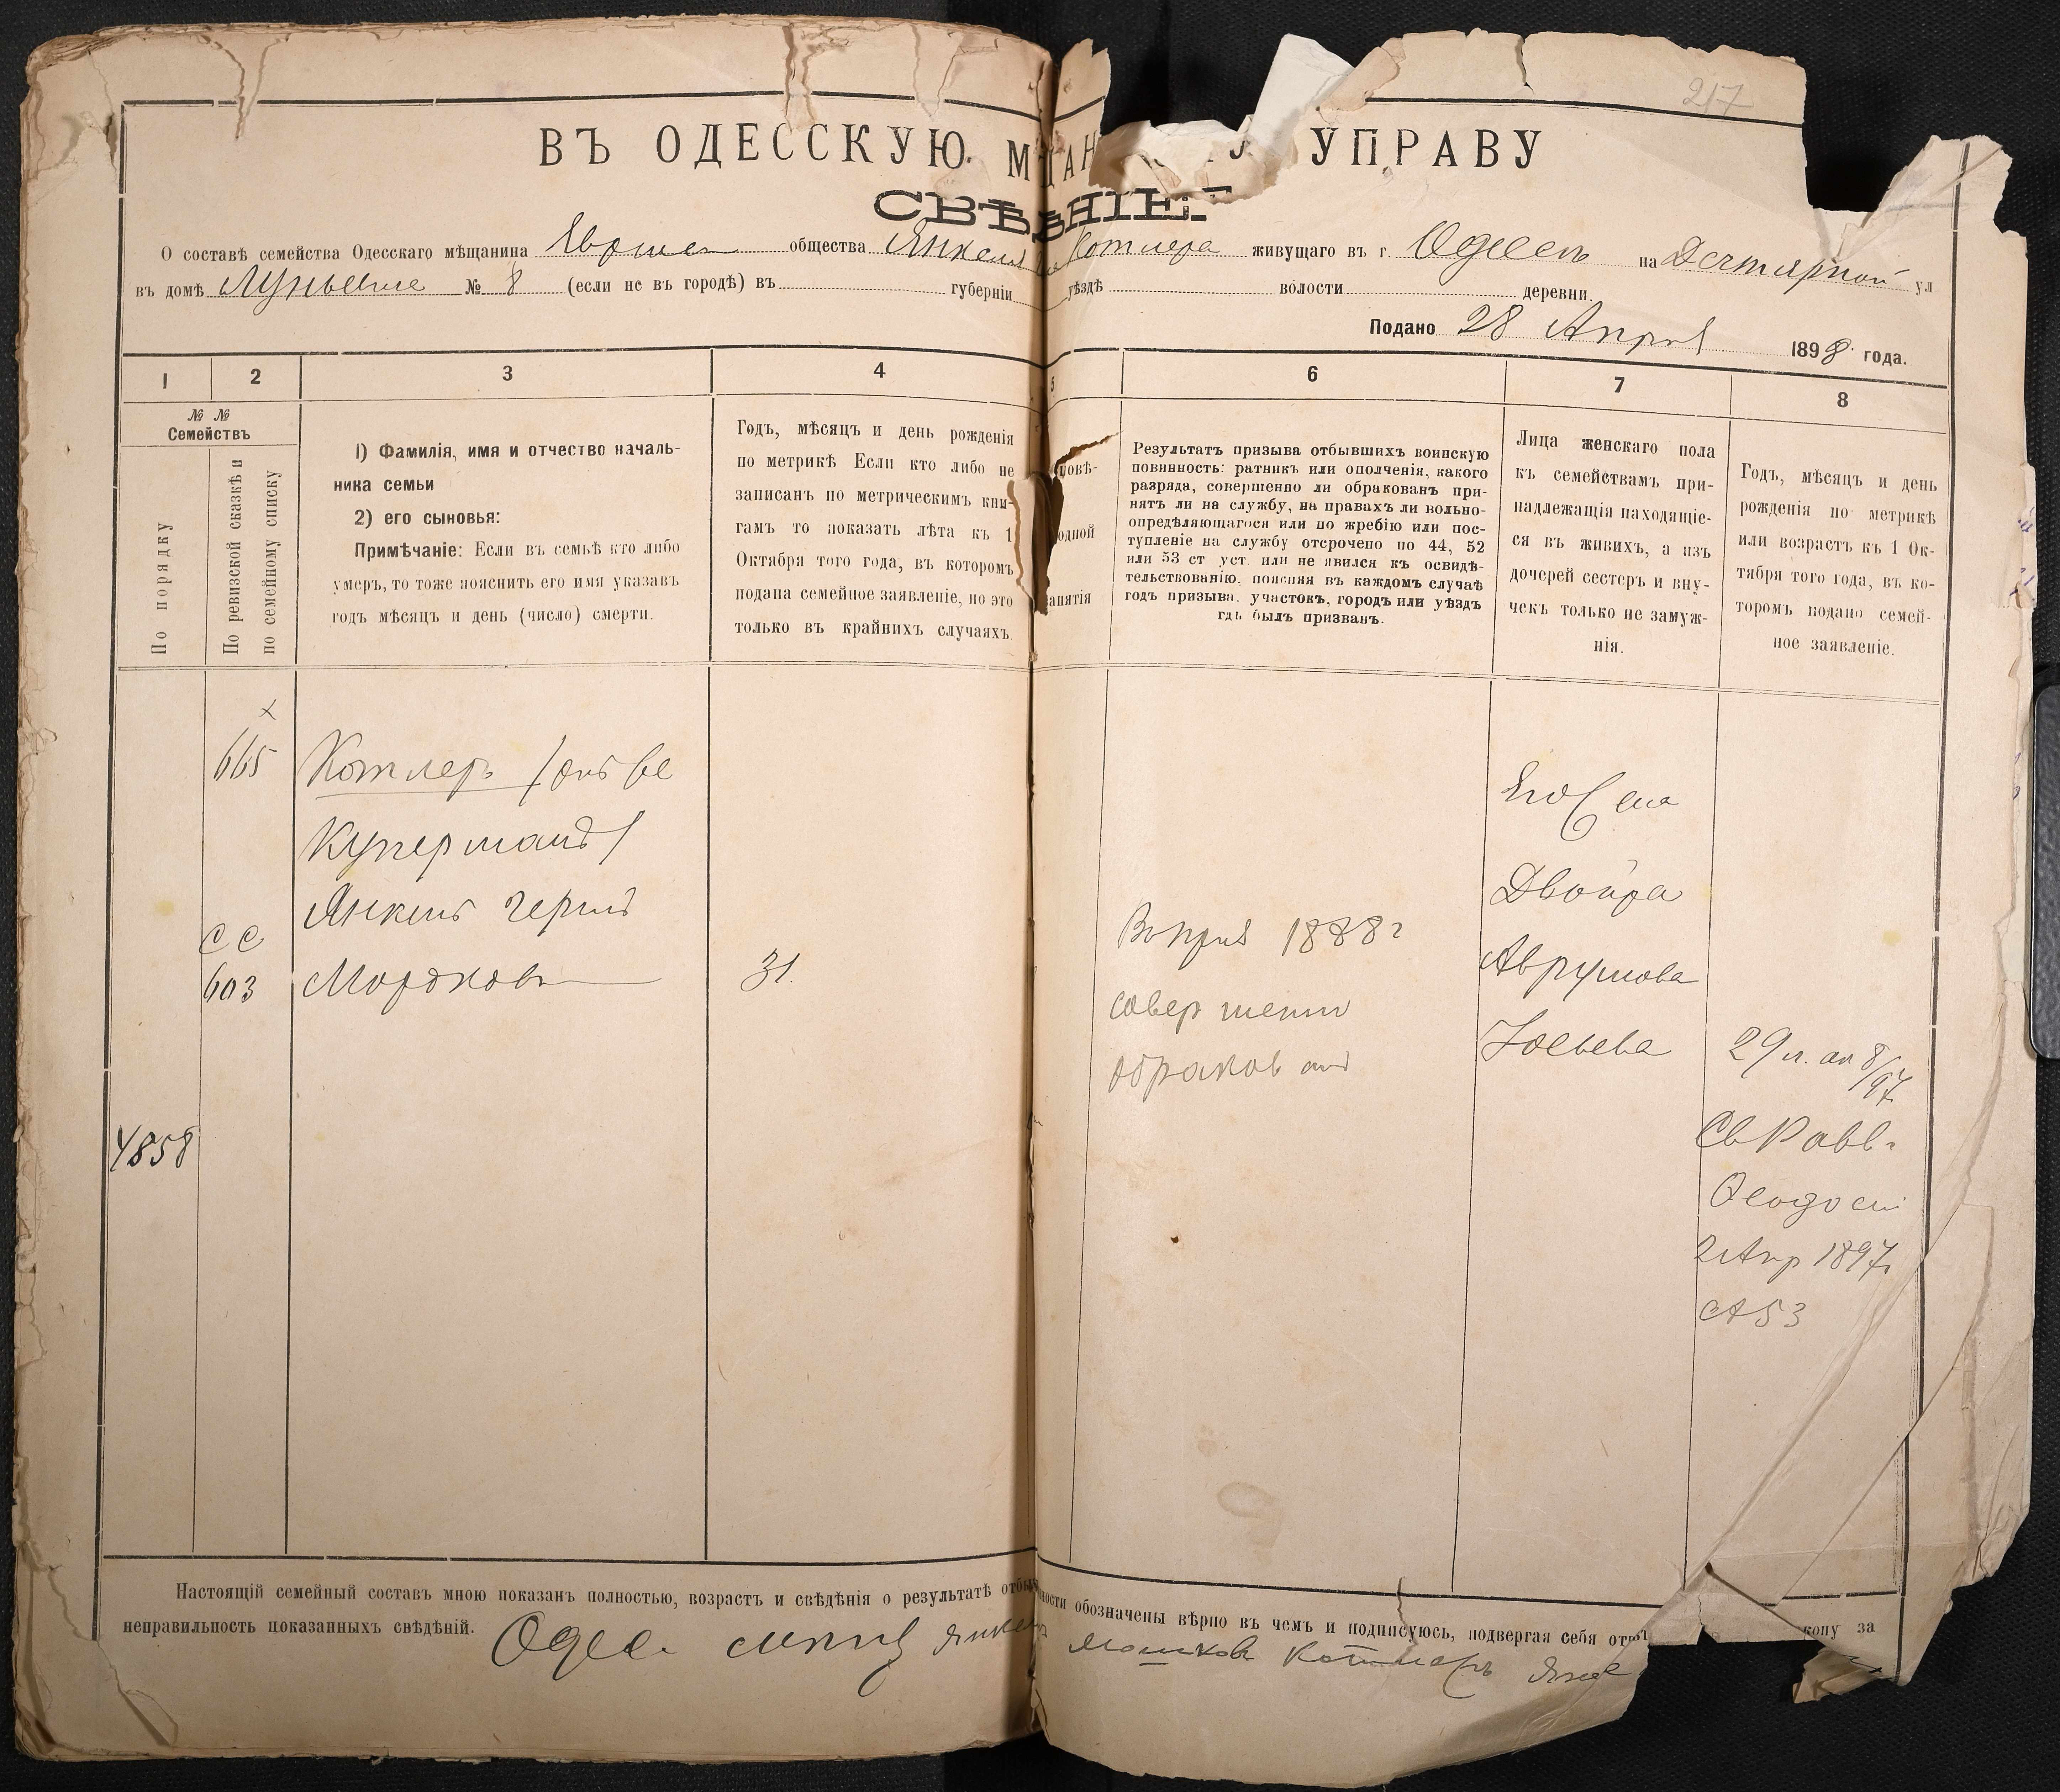 217
ВЪ ОДЕССКУЮ УПРАВУ
О составѣ семейства Одесскаго мѣщанина общества Янкеля Котлера живущаго въ г. Одессѣ на Дегтярной ул
въ домѣ № 8 (если не въ городѣ) въ губерніи уѣздѣ волости деревни.
Подано 28 Апрѣля 1898 года.
1 2 3 4 5 6 7 8
№ №
Семействъ
По порядку
По ревизской сказкѣ и
по семейному списку
1) Фамилія, имя и отчество началь-
ника семьи
2) его сыновья:
Примѣчаніе: Если въ семьѣ кто либо
умеръ, то тоже пояснить его имя указавъ
годъ мѣсяцъ и день (число) смерти.
Годъ, мѣсяцъ и день рожденія
по метрикѣ Если кто либо не
записанъ по метрическимъ кни-
гамъ то показать лѣта къ 1
Октября того года, въ которомъ
подана семейное заявленіе, но это
только въ крайнихъ случаяхъ
Результатъ призыва отбывшихъ воинскую
повинность: ратникъ или ополченія, какого
разряда, совершенно ли обракованъ при-
нятъ ли на службу, на правахъ ли вольно-
опредѣляющагося или по жребію или пос-
тупленіе на службу отсрочено по 44, 52
или 53 ст уст. или не явился къ освидѣ-
тельствованію, поясняя въ каждомъ случаѣ
годъ призыва, участокъ, городъ или уѣздъ
гдѣ былъ призванъ.
Лица женскаго пола
къ семействамъ при-
надлежащія находящіе-
ся въ живихъ, а изъ
дочерей сестеръ и вну-
чекъ только не замуж-
нія.
Годъ, мѣсяцъ и день
рожденія по метрикѣ
или возрастъ къ 1 Ок-
тября того года, въ ко-
торомъ подано семей-
ное заявленіе.
х
665 Котлеръ (онъ же
Куперманъ)
Янкель Герш
сс
603 Мордковъ
31.
1888 г
совершенно
обракованъ
Его жена
Двойра
Аврумова
29 л.
4858
Св Равв.
Ѳеодосіи
2 Апр 1897 г
53
Настоящій семейный составъ мною показанъ полностью, возрастъ и свѣдѣнія о результатѣ обозначены вѣрно въ чемъ и подписуюсь, подвергая себя за
неправильность показанныхъ свѣдѣній.
Янкель Мошковъ Котлеръ